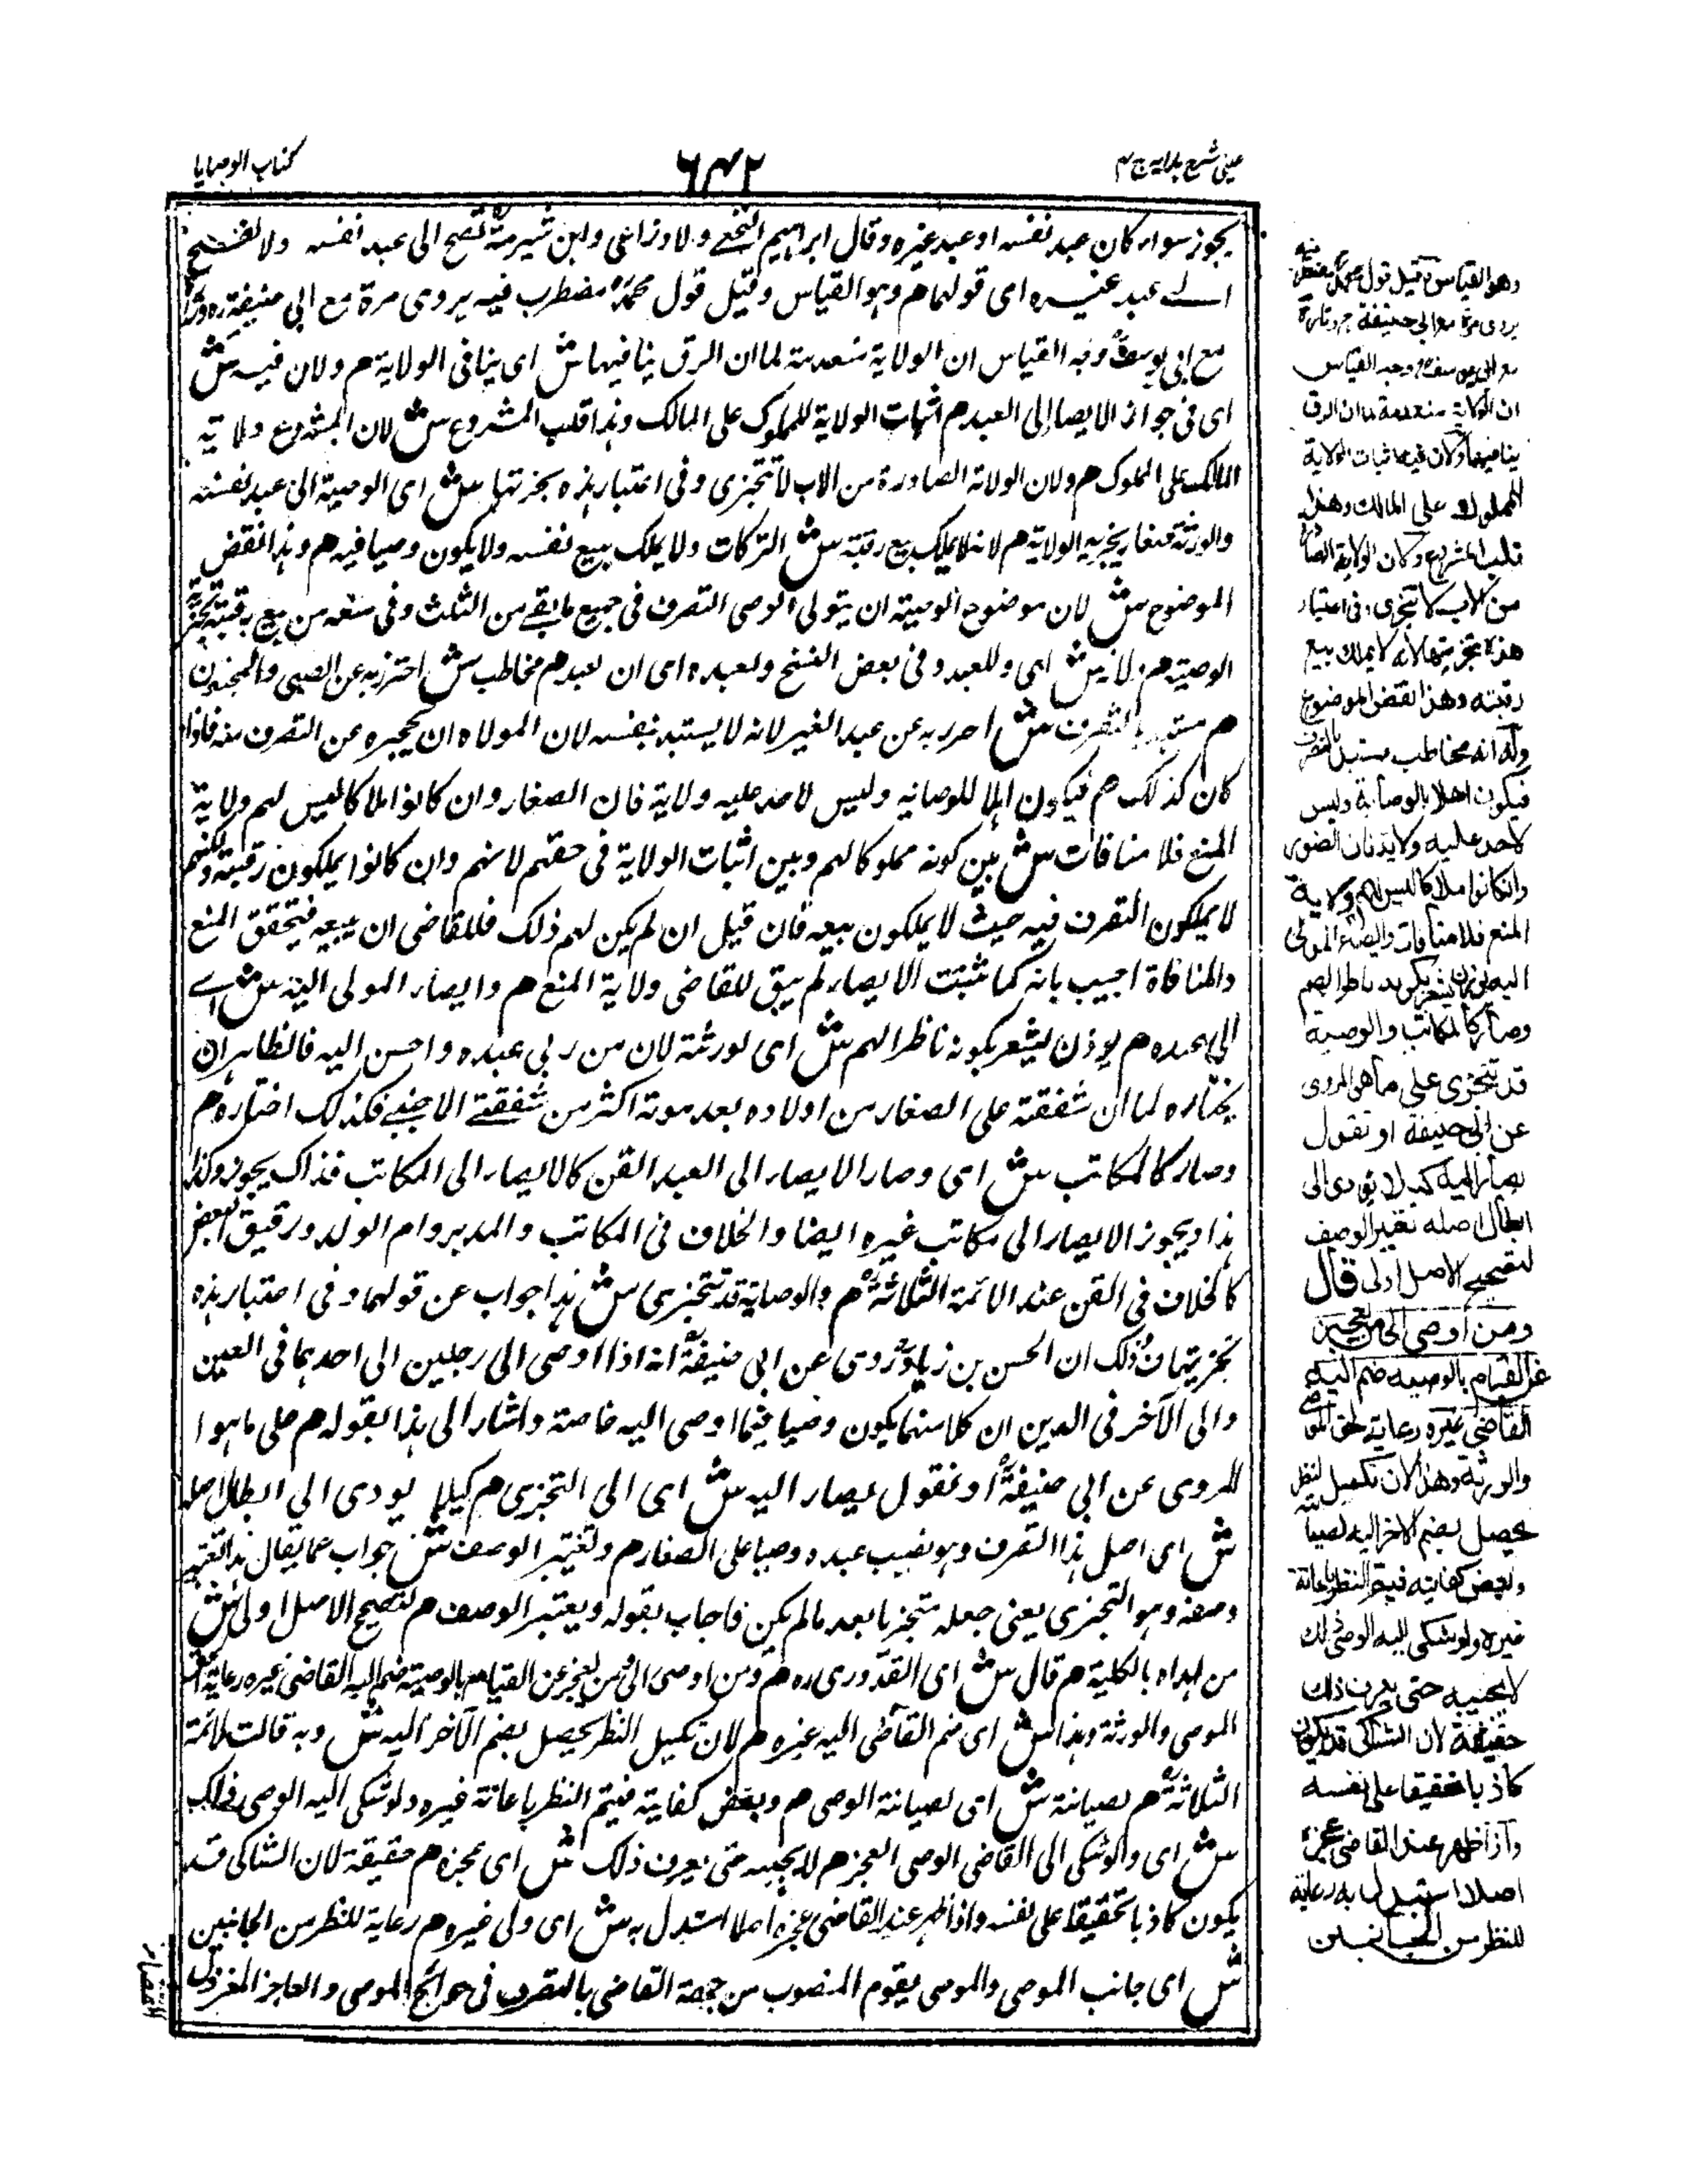 عینی شرح ہدایہ ج ۴
۶۴۲
کتاب الوصایا
یجوز سواء کان عبد نفسه او عبد غیره وقال ابراہیم النخعے ولاوزاعی وابن شبرمة تصح الی عبد نفسه ولا تصح
الے عبد غیره ای قولهما م وہو القیاس وقیل قول محمد مضطرب فیه یروی مرة مع ابی حنیفة رہ
مع ابی یوسف وجه القیاس ان الولایة منعدمة لما ان الرق ینافیها ش ای ینافی الولایة م ولان فیه ش
ای فی جواز الایصا إلی العبد م اثبات الولایة للملوک علی المالک وہذا قلب المشروع ش لان المشروع ولایة
المالک علی المملوک م ولان الولایة الصادرة من الاب لا تتجزی وفی اعتبار ہذه تجزئتها ش ای الوصیة الی عبد نفسه
والورثة صغار تجزیة الولایة م لانه لا یملک بیع رقبته ش الترکات ولا یملک بیع نفسه ولا یکون وصیا فیه م وہذا نقض
الموضوع ش لان موضوع الوصیة ان یتولی الوصی التصرف فی جمیع ما بقے من الثلث وفی منعه من بیع رقبته
الوصیة م وله انه ش ای وللعبد وفی بعض النسخ ولعبده ای ان لعبد م مخاطب ش احترز به عن الصبی والمجنون
م مستبد بالتصرف ش احترز به عن عبد الغیر لانه لا یستبد بنفسه لان المولاه ان یحجره عن التصرف منه فاذا
کان کذلک م فیکون اہلا للوصایة ولیس لاحد علیه ولایة فان الصغار وان کانوا ملاکا لیس لهم ولایة
المنع فلا منافات ش بین کونه مملوکا لهم وبین اثبات الولایة فی حقهم لانهم وان کانوا یملکون رقبته ولکنهم
لا یملکون التصرف فیه حیث لا یملکون بیعه فان قیل ان لم یکن لهم ذلک فللقاضی ان یبیعه فیتحقق المنع
والمنافاة اجیب بانه کما ثبتت الایصاء لم یبق للقاضی ولایة المنع م وایصاء المولی الیه ش اے
الی عبده م یوذن لیشعر بکونه ناظرا لهم ش ای لورثته لان من ربی عبده واحسن الیه فالظاہر ان
یختاره لما ان شفقته علی الصغار من اولاده بعد موته اکثر من شفقتے الاجنبے فکذلک اختاره م
وصار کالمکاتب ش ای وصار الایصاء الی العبد القن کالایصاء الی المکاتب فذاک یجوز وکذا
ہذا ویجوز الایصاء الی مکاتب غیره ایضا والخلاف فی المکاتب والمدبر وام الولد ورقیق البعض
کالخلاف فی القن عند الائمة الثلاثة م والوصایة قد تتجزی ش ہذا جواب عن قولهما وفی اعتبار ہذه
تجزیتها ذلک ان الحسن بن زیاد روی عن ابی حنیفة انه اذا اوصی الی رجلین الی احدہما فی العین
والی الآخر فی الدین ان کلا منهما یکون وصیا فیما اوصی الیه خاصة واشار الی ہذا بقوله م علی ما ہو ا
لمروی عن ابی حنیفة او نقول یصار الیه ش ای الی التجزی م کیلا یودی الی ابطال اصله
ش ای اصل ہذا التصرف وہو نصیب عبده وصیا علی الصغار م وتغییر الوصف ش جواب عما یقال
وصفه وہو التجزی یعنی جعله متجزیا بعد ما لم یکن فاجاب بقوله وتغییر الوصف م لتصحیح الاصل اولی ش
من اہداه بالکلیة م قال ش ای القدوری رہ م ومن اوصی الی من یعجز عن القیام بالوصیة ضم الیه القاضی غیره رعایة
الموصی والورثة وہذا ش ای ضم القاضی الیه غیره م لان تکمیل النظر یحصل بضم الآخر الیه ش وبه قالت الائمة
الثلاثة م لصیانته ش ای لصیانته الوصی م وبعض کفایته فیتم النظر باعانة غیره ولو شکی الیه الوصی ذلک
ش ای ولو شکی الی القاضی الوصی العجز م لا یجیبه حتی یعرف ذلک ش ای عجزه م حقیقة لان الشاکی قد
یکون کاذبا تحقیقا علی نفسه واذا ظهر عند القاضی عجزه اصلا استبدل به ش ای ولی غیره م رعایة للنظر من الجانبین
ش ای جانب الموصی والموصی یقوم المنصوب من جهة القاضی بالتصرف فی حوائج الموصی والعاجز
وهو القیاس وقیل قول محمد
یروی مرة مع ابی حنیفة وتارة
مع ابی یوسف وجه القیاس
ان الولایة منعدمة لما ان الرق
ینافیها ولان فیه اثبات الولایة
المملوک علی المالک وهذا
قلب المشروع ولان الولایة
من الاب لا تتجزی وفی اعتبار
هذه تجزیتها لانه لا یملک بیع
رقبته وهذا نقض الموضوع
وله انه مخاطب مستبد
فیکون اهلا للوصایة ولیس
لاحد علیه ولایة فان الصغار
وان کانوا ملاکا لیس لهم ولایة
المنع فلا منافات وایصاء المولی
الیه یوذن بکونه ناظرا لهم
وصار کالمکاتب والوصیة
قد تتجزی علی ما هو المروی
عن ابی حنیفة او نقول
یصار الیه کیلا یؤدی الی
ابطال اصله وتغییر الوصف
لتصحیح الاصل اولی قال
ومن اوصی الی من یعجز
عن القیام بالوصیة ضم الیه
القاضی غیره رعایة لحق
والورثة وهذا لان تکمیل النظر
یحصل بضم الاخر الیه لصیانته
وبعض کفایته فیتم النظر باعانة
غیره ولو شکی الیه الوصی ذلک
لا یجیبه حتی یعرف ذلک
حقیقة لان الشاکی قد یکون
کاذبا تحقیقا علی نفسه
واذا ظهر عند القاضی عجزه
اصلا استبدل به رعایة
للنظر من الجانبین